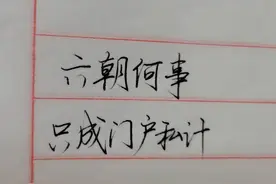 六朝何事
只成门户私计